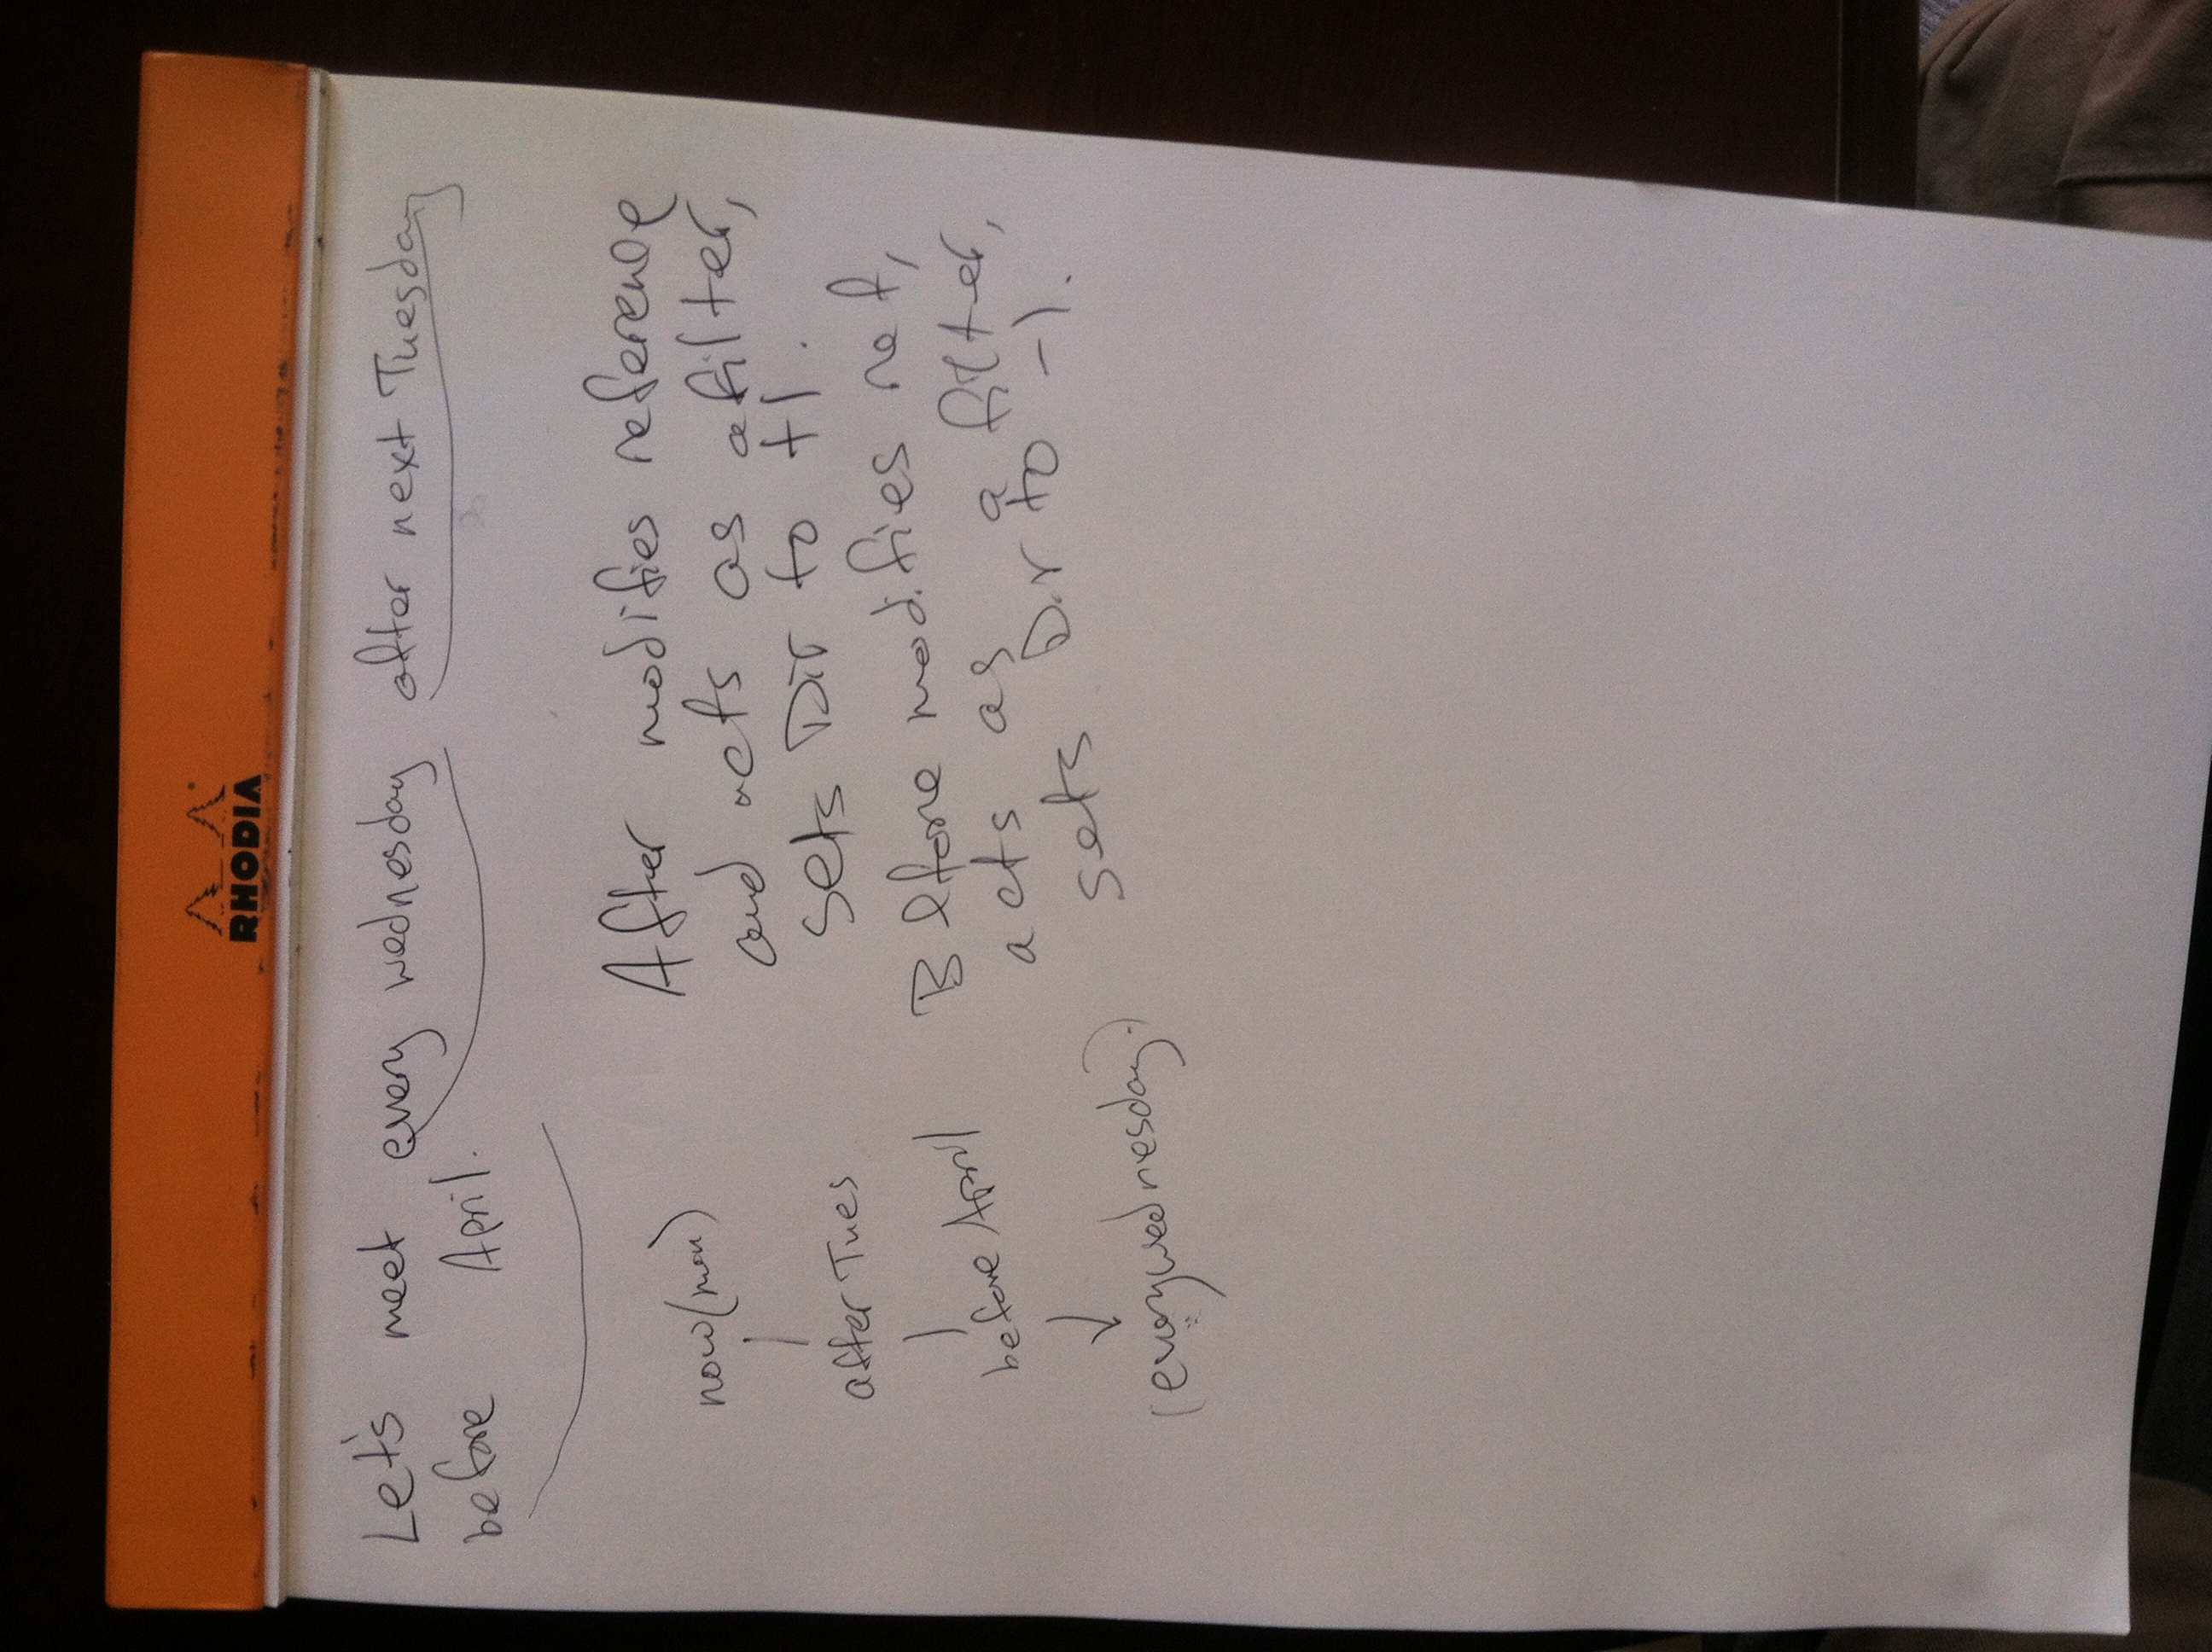 RHODIA
Let's meet every wednesday after next Tuesday
before April.
now(mon)
after Tues
before April
(every wednesday.)
After modifies reference
and acts as a filter,
sets Dir to +1.
Before modifies ref,
acts as a filter,
sets Dir to -1.